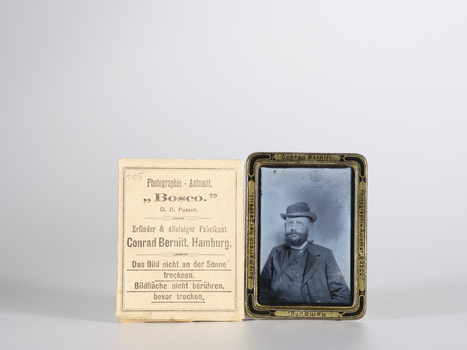 105
Photographie - Automat.
„Bosco.”
D. R. Patent.
Erfinder & alleiniger Fabrikant
Conrad Bernitt, Hamburg.
Das Bild nicht an der Sonne
trocknen,
Bildfläche nicht berühren,
bevor trocken.
Conrad Bernitt
Hamburg.